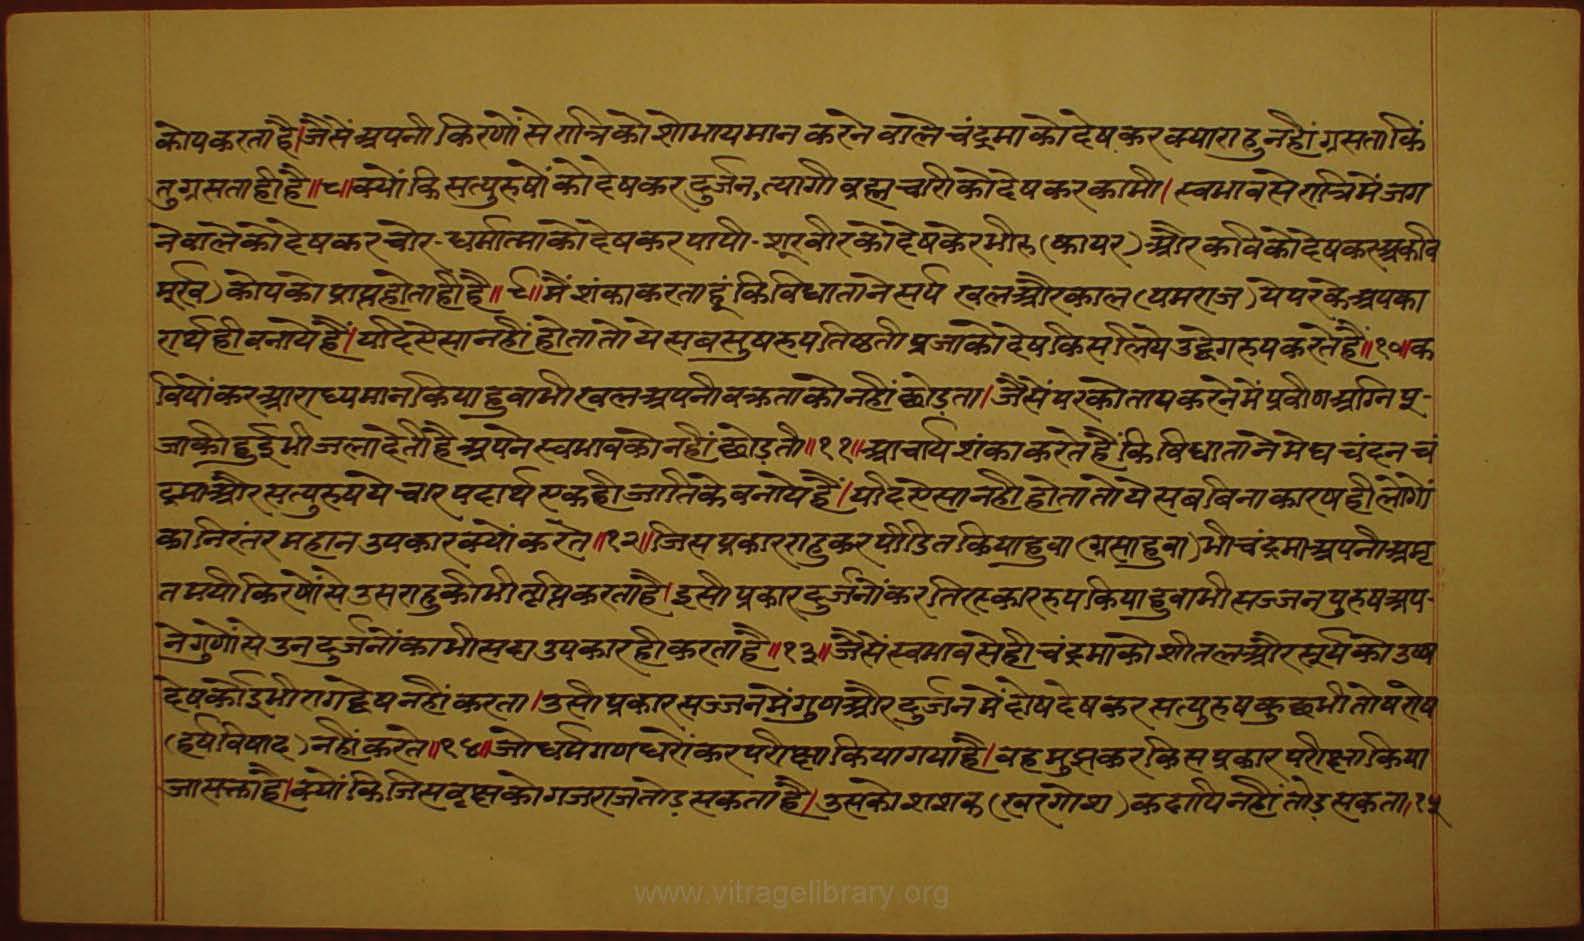 कोप करता है। जैसें अपनी किरणों से रात्रि को शोभायमान करने वाले चंद्रमा को देष कर क्या राहु नहीं ग्रसता किं
तु ग्रसता ही है॥८॥ क्यों कि सत्पुरुषों को देष कर दुर्जन, त्यागी ब्रह्मचारी को देष कर कामी। स्वभाव से रात्रि में जग
ने वाले को देष कर चोर - धर्मात्मा को देष कर पापी - शूरवीर को देष केर भीरु (कायर) और कवि को देष कर अकवि
मूर्ख) कोप को प्राप्त होता ही है॥९॥ मैं शंका करता हूं कि विधाता ने सर्प खल और काल (यमराज) ये पर के अपका
रार्थ ही बनाये हैं। यदि ऐसा नहीं होता तो ये सब सुषरुप तिष्ठती प्रजा को देष किस लिये उद्वेगरुप करते हैं॥१०॥ क
वियों कर आराध्यमान किया हुवा भी खल अपनी वक्रता को नहीं छोड़ता। जैसें पर को ताप करने में प्रवीण अग्नि पू-
जा की हुई भी जला देती है अपने स्वभाव को नहीं छोड़ती॥११॥ आचार्य शंका करते हैं कि विधाता ने मेघ चंदन चं
द्रमा और सत्पुरुष ये चार पदार्थ एक ही जाति के बनाये हैं। यदि ऐसा नही होता तो ये सब बिना कारष ही लोगों
का निरंतर महान उपकार क्यों करते॥१२॥ जिस प्रकार राहु कर पीडित किया हुवा (ग्रसा हुवा) भी चंद्रमा अपनी अमृ
तमयी किरणों से उस राहु की भी तृप्ति करता है। इसी प्रकार दुर्जनों कर तिरस्काररुप किया हुवा भी सज्जन पुरुष अप-
ने गुणों से उन दुर्जनों का भी सदा उपकार ही करता है॥१३॥ जैसें स्वभाव से ही चंद्रमा को शीतल और सूर्य को उष्ण
देष कोई भी राग द्वेष नहीं करता। उसी प्रकार सज्जन में गुण और दुर्जन में दोष देष कर सत्पुरुष कुछ भी तोष रोष
(हर्ष विषाद) नहीं करते॥१४॥ जो धर्म गणधरों कर परीक्षा किया गया है। वह मुझ कर किस प्रकार परीक्षा किया
जा सक्ता है। क्यों कि जिस वृक्ष को गजराज तोड़ सकता है। उसको शशक (खरगोश) कदापि नहीं तोड़ सकता।१५
www.vitragelibrary.org